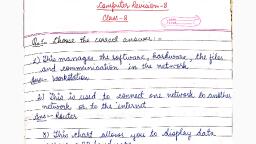 Computer Revision-8
Class-8
Q.1- Choose the correct answer:-
1) This manages the software, hardware, the files
and communication in the network
Ans- Workstation
2) This is used to connect one network to another
network or to the internet
Ans- Router
3) This chart allows you to display data